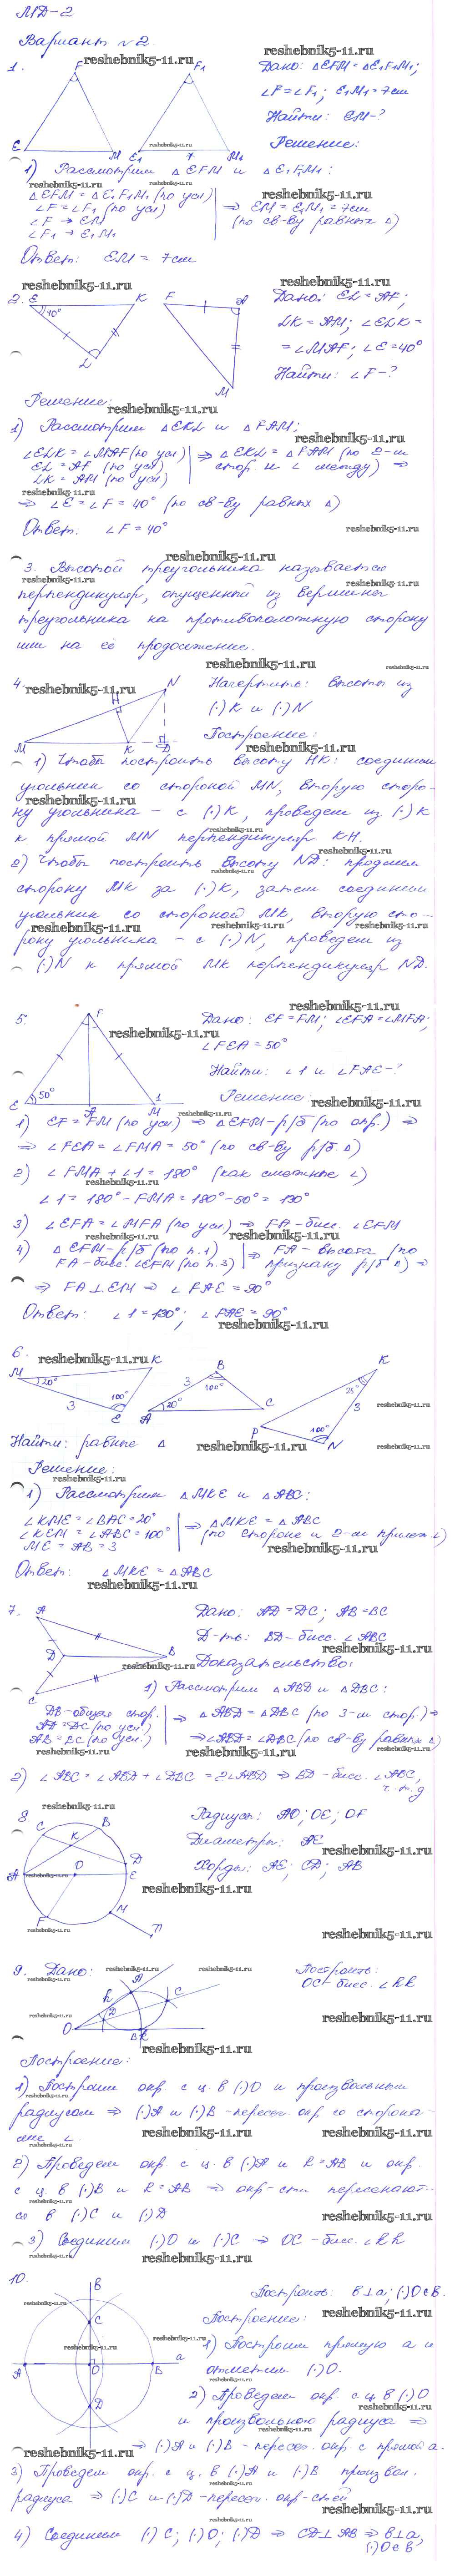 МД-2
Вариант №2
1.
F
F₁
E
M
E₁
7
M₁
Дано: ΔEFM = ΔE₁F₁M₁;
∠F = ∠F₁; E₁M₁ = 7 см
Найти: EM-?
Решение:
1) Рассмотрим ΔEFM и ΔE₁F₁M₁:
ΔEFM = ΔE₁F₁M₁ (по усл)
∠F = ∠F₁ (по усл)
∠F → EM
∠F₁ → E₁M₁
⇒ EM = E₁M₁ = 7см
(по св-ву равных Δ)
Ответ: EM = 7см
reshebnik5-11.ru
2.
E
40°
K
L
F
A
M
Дано: EL = AF;
LK = AM; ∠ELK =
= ∠MAF; ∠E = 40°
Найти: ∠F-?
Решение:
1) Рассмотрим ΔEKL и ΔFAM:
∠ELK = ∠MAF (по усл)
EL = AF (по усл)
LK = AM (по усл)
⇒ ΔEKL = ΔFAM (по 2-м
стор. и ∠ между) ⇒
⇒ ∠E = ∠F = 40° (по св-ву равных Δ)
Ответ: ∠F = 40°
3. Высотой треугольника называется
перпендикуляр, опущенный из вершины
треугольника на противоположную сторону
или на её продолжение.
4.
H
N
M
K
D
Начертить: высоты из
(·)K и (·)N
Построение:
1) Чтобы построить высоту HK: соединим
угольник со стороной MN, вторую сторо-
ну угольника – с (·)K, проведем из (·)K
к прямой MN перпендикуляр KH.
2) Чтобы построить высоту ND: продлим
сторону MK за (·)K, затем соединим
угольник со стороной MK, вторую сто-
рону угольника – с (·)N, проведем из
(·)N к прямой MK перпендикуляр ND.
5.
F
E
50°
A
M
1
Дано: EF = FM; ∠EFA = ∠MFA;
∠FEA = 50°
Найти: ∠1 и ∠FAE-?
Решение:
1) EF = FM (по усл) ⇒ ΔEFM-р/б (по опр.) ⇒
⇒ ∠FEA = ∠FMA = 50° (по св-ву р/б. Δ)
2) ∠FMA + ∠1 = 180° (как смежные ∠)
∠1 = 180° - FMA = 180° - 50° = 130°
3) ∠EFA = ∠MFA (по усл) ⇒ FA-бисс. ∠EFM
4) ΔEFM-р/б (по п.1)
FA-бисс. ∠EFM (по п.3)
⇒ FA-высота (по
признаку р/б Δ) ⇒
⇒ FA⊥EM ⇒ ∠FAE = 90°
Ответ: ∠1 = 130°; ∠FAE = 90°
6.
M
20°
K
3
100°
E
A
20°
3
B
100°
C
K
3
P
100°
N
Найти: равные Δ
Решение:
1) Рассмотрим ΔMKE и ΔABC:
∠KME = ∠BAC = 20°
∠KEM = ∠ABC = 100°
ME = AB = 3
⇒ ΔMKE = ΔABC
(по стороне и 2-м прилеж ∠)
Ответ: ΔMKE = ΔABC
7.
A
D
B
C
Дано: AD = DC; AB = BC
Д-ть: BD-бисс. ∠ABC
Доказательство:
1) Рассмотрим ΔABD и ΔDBC:
DB-общая стор.
AD = DC (по усл.)
AB = BC (по усл.)
⇒ ΔABD = ΔDBC (по 3-м стор.) ⇒
⇒ ∠ABD = ∠DBC (по св-ву равных Δ)
2) ∠ABC = ∠ABD + ∠DBC = 2∠ABD ⇒ BD-бисс. ∠ABC,
ч.т.д.
8.
C
B
K
O
A
D
E
F
M
Радиусы: AO; OE; OF
Диаметры: AE
Хорды: AE; CD; AB
9. Дано:
h
A
C
D
O
B
k
Построить:
OC-бисс. ∠hk
Построение:
1) Построим окр. с ц. в (·)O и произвольным
радиусом ⇒ (·)A и (·)B-пересеч. окр. со сторона-
ми ∠.
2) Проведем окр. с ц. в (·)A и R = AB и окр.
с ц. в (·)B и R = AB ⇒ окр-сти пересекают-
ся в (·)C и (·)D
3) Соединим (·)O и (·)C ⇒ OC-бисс. ∠hk
10.
в
C
A
O
B
a
D
Построить: в⊥a; (·)O∈в.
Построение:
1) Построим прямую a и
отметим (·)O.
2) Проведем окр. с ц. в (·)O
и произвольного радиуса ⇒
⇒ (·)A и (·)B-пересеч. окр. с прямой a.
3) Проведем окр. с ц. в (·)A и (·)B произвол.
радиуса ⇒ (·)C и (·)D-пересеч. окр-стей
4) Соединим (·)C; (·)O; (·)D ⇒ CD⊥AB ⇒ в⊥a,
(·)O∈в